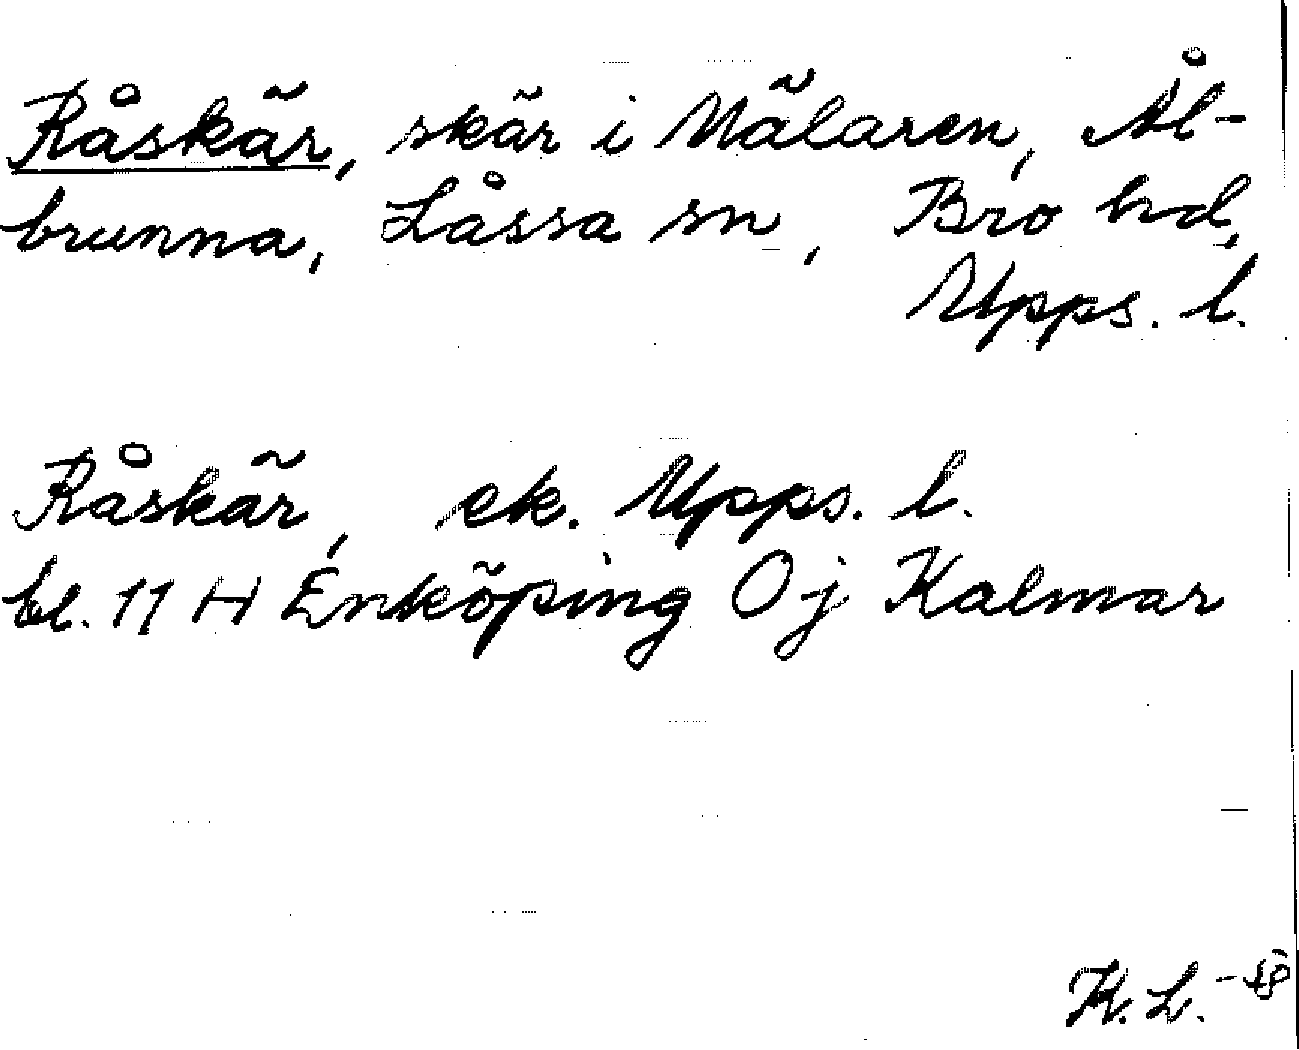 Råskär, skär i Mälaren, Ål-
brunna, Låssa sn, Bro hd,
Upps. l.
Råskär, ek. Upps. l.
bl. 11 H Enköping Oj Kalmar
K. L.